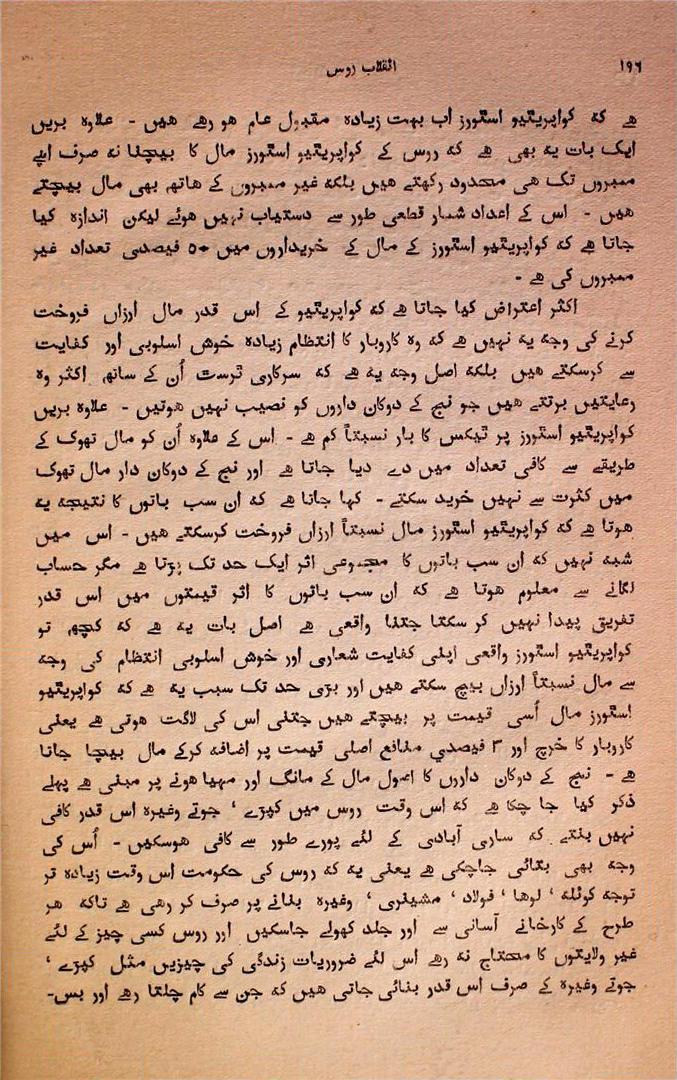 ۱۹۶
انقلاب روس
ھے کہ کواپریٹیو اسٹورز اب بہت زیادہ مقبول عام ھو رھے ھیں - علاوہ بریں
ایک بات یہ بھی ھے کہ روس کے کواپریٹیو اسٹورز مال کا بیچنا نہ صرف اپنے
ممبروں تک ھی محدود رکھتے ھیں بلکہ غیر ممبروں کے ھاتھ بھی مال بیچتے
ھیں - اس کے اعداد شمار قطعی طور سے دستیاب نہیں ھوئے لیکن اندازہ کیا
جاتا ھے کہ کواپریٹیو اسٹورز کے مال کے خریداروں میں ۵۰ فیصدی تعداد غیر
ممبروں کی ھے -
اکثر اعتراض کیا جاتا ھے کہ کواپریٹیو کے اس قدر مال ارزاں فروخت
کرنے کی وجہ یہ نہیں ھے کہ وہ کاروبار کا انتظام زیادہ خوش اسلوبی اور کفایت
سے کرسکتے ھیں بلکہ اصل وجہ یہ ھے کہ سرکاری ٹرسٹ اُن کے ساتھ اکثر وہ
رعایتیں برتتے ھیں جو نج کے دوکان داروں کو نصیب نہیں ھوتیں - علاوہ بریں
کواپریٹیو اسٹورز پر ٹیکس کا بار نسبتاً کم ھے - اس کے علاوہ اُن کو مال تھوک کے
طریقے سے کافی تعداد میں دے دیا جاتا ھے اور نج کے دوکان دار مال تھوک
میں کثرت سے نہیں خرید سکتے - کہا جاتا ھے کہ ان سب باتوں کا نتیجہ یہ
ھوتا ھے کہ کواپریٹیو اسٹورز مال نسبتاً ارزاں فروخت کرسکتے ھیں - اس میں
شبہ نہیں کہ ان سب باتوں کا مجموعی اثر ایک حد تک پڑتا ھے مگر حساب
لگانے سے معلوم ھوتا ھے کہ ان سب باتوں کا اثر قیمتوں میں اس قدر
تفریق پیدا نہیں کر سکتا جتنا واقعی ھے اصل بات یہ ھے کہ کچھ تو
کواپریٹیو اسٹورز واقعی اپنی کفایت شعاری اور خوش اسلوبی انتظام کی وجہ
سے مال نسبتاً ارزاں بیچ سکتے ھیں اور بڑی حد تک سبب یہ ھے کہ کواپریٹیو
اسٹورز مال اُسی قیمت پر بیچتے ھیں جتنی اس کی لاگت ھوتی ھے یعنی
کاروبار کا خرچ اور ۳ فیصدی منافع اصلی قیمت پر اضافہ کرکے مال بیچا جاتا
ھے - نج کے دوکان داروں کا اصول مال کے مانگ اور مہیا ھونے پر مبنی ھے پہلے
ذکر کیا جا چکا ھے کہ اس وقت روس میں کپڑے ‘ جوتے وغیرہ اس قدر کافی
نہیں بنتے کہ ساری آبادی کے لئے پورے طور سے کافی ھوسکیں - اُس کی
وجہ بھی بتائی جاچکی ھے یعنی یہ کہ روس کی حکومت اس وقت زیادہ تر
توجہ کوئلہ ‘ لوھا ‘ فولاد ‘ مشینری ‘ وغیرہ بنانے پر صرف کر رھی ھے تاکہ ھر
طرح کے کارخانے آسانی سے اور جلد کھولے جاسکیں اور روس کسی چیز کے لئے
غیر ولایتوں کا محتاج نہ رھے اس لئے ضروریات زندگی کی چیزیں مثل کپڑے ‘
جوتے وغیرہ کے صرف اس قدر بنائی جاتی ھیں کہ جن سے کام چلتا رھے اور بس-